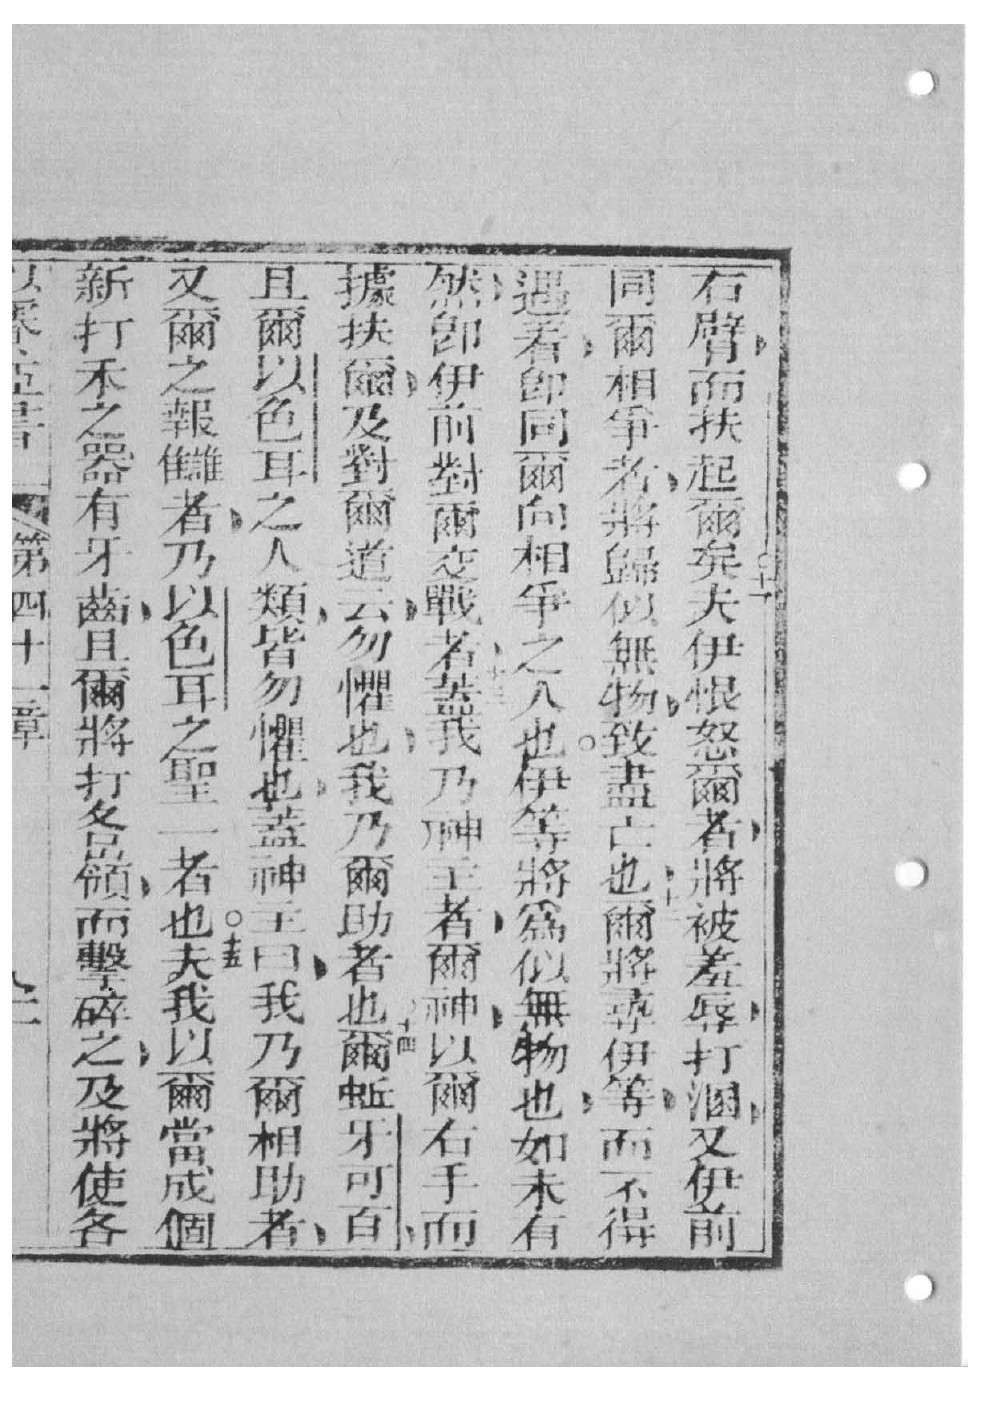 右臂而扶起爾矣○十一夫伊恨怒爾者將被羞辱打溷又伊前
同爾相爭者將歸似無物致盡亡也十二爾將尋伊等而不得
遇着即同爾向相爭之人也○伊等將為似無物也如未有
然即伊前對爾交戰者十三蓋我乃神主者爾神以爾右手而
據扶爾及對爾道云勿懼也我乃爾助者也十四爾蚯牙可百
且爾以色耳之人類皆勿懼也蓋神主曰我乃爾相助者
又爾之報讎者乃以色耳之聖一者也○十五夫我以爾當成個
新打禾之器有牙齒且爾將打各嶺而擊碎之及將使各
書 第四十一章